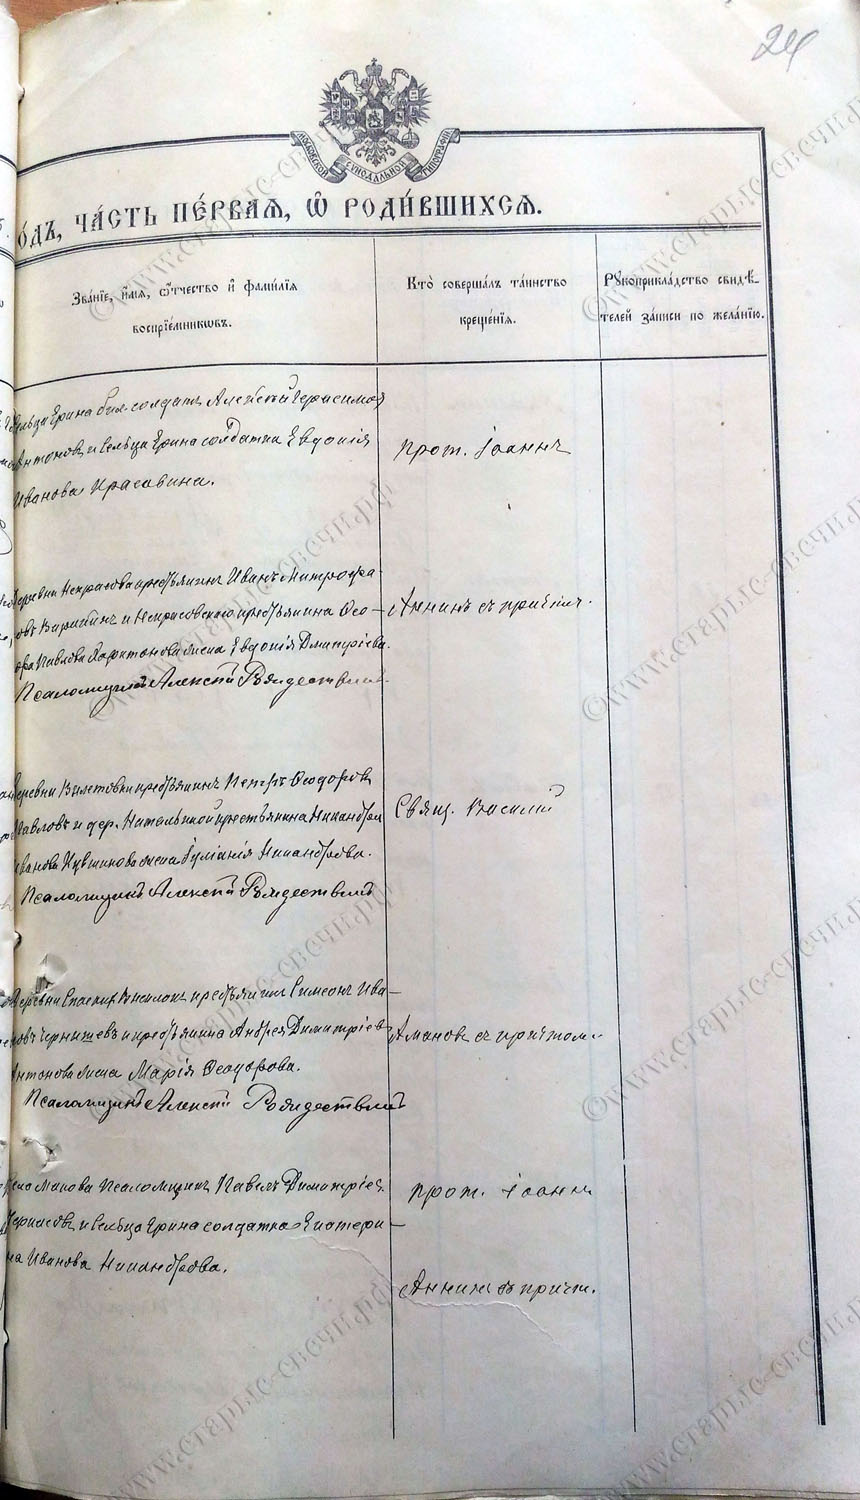 24
МОСКОВСКОЙ СѴНОДАЛЬНОЙ ТИПОГРАФІИ
О́ДЪ, ЧА́СТЬ ПЕ́РВАѦ, Ѡ҆ РОДИ́ВШИХСѦ.
Зва́нїе, и҆́мѧ, ѻ҆́тчество и҆ фами́лїѧ
воспрїе́мникѡвъ.
Кто̀ соверша́лъ та́инство
креще́нїѧ.
Рꙋкоприкла́дство свидѣ́-
телей за́писи по жела́нїю.
сельца Ерина солдатъ Алексѣй Герасимов
Антоновъ и сельца Ерина солдатка Евдокія
Иванова Красавина.
прот. Іоаннъ
деревни Некрасова крестьянинъ Иванъ Митрофа-
овъ и Некрасовскаго крестьянина Ѳео-
ора Павлова Харитонова жена Евдокія Димитріева.
Псаломщикъ Алексѣй Рождествинъ
Аннинъ съ причтом.
деревни крестьянинъ Петръ Ѳеодоровъ
Павловъ и дер. крестьянина Никандра
Иванова жена Іуліанія Никандрова.
Псаломщикъ Алексѣй Рождествинъ
Свящ. Василій
деревни крестьянинъ Симеонъ Ива-
новъ Чернышевъ и крестьянина Андрея Димитріева
Антонова жена Марія Ѳеодорова.
Псаломщикъ Алексѣй Рождествинъ
Аманов съ причтом.
села псаломщикъ Павелъ Димитріев
и сельца Ерина солдатка Екатери-
на Иванова Никандрова.
прот. Іоаннъ
Аннинъ съ причт.
©www.старые-свечи.рф